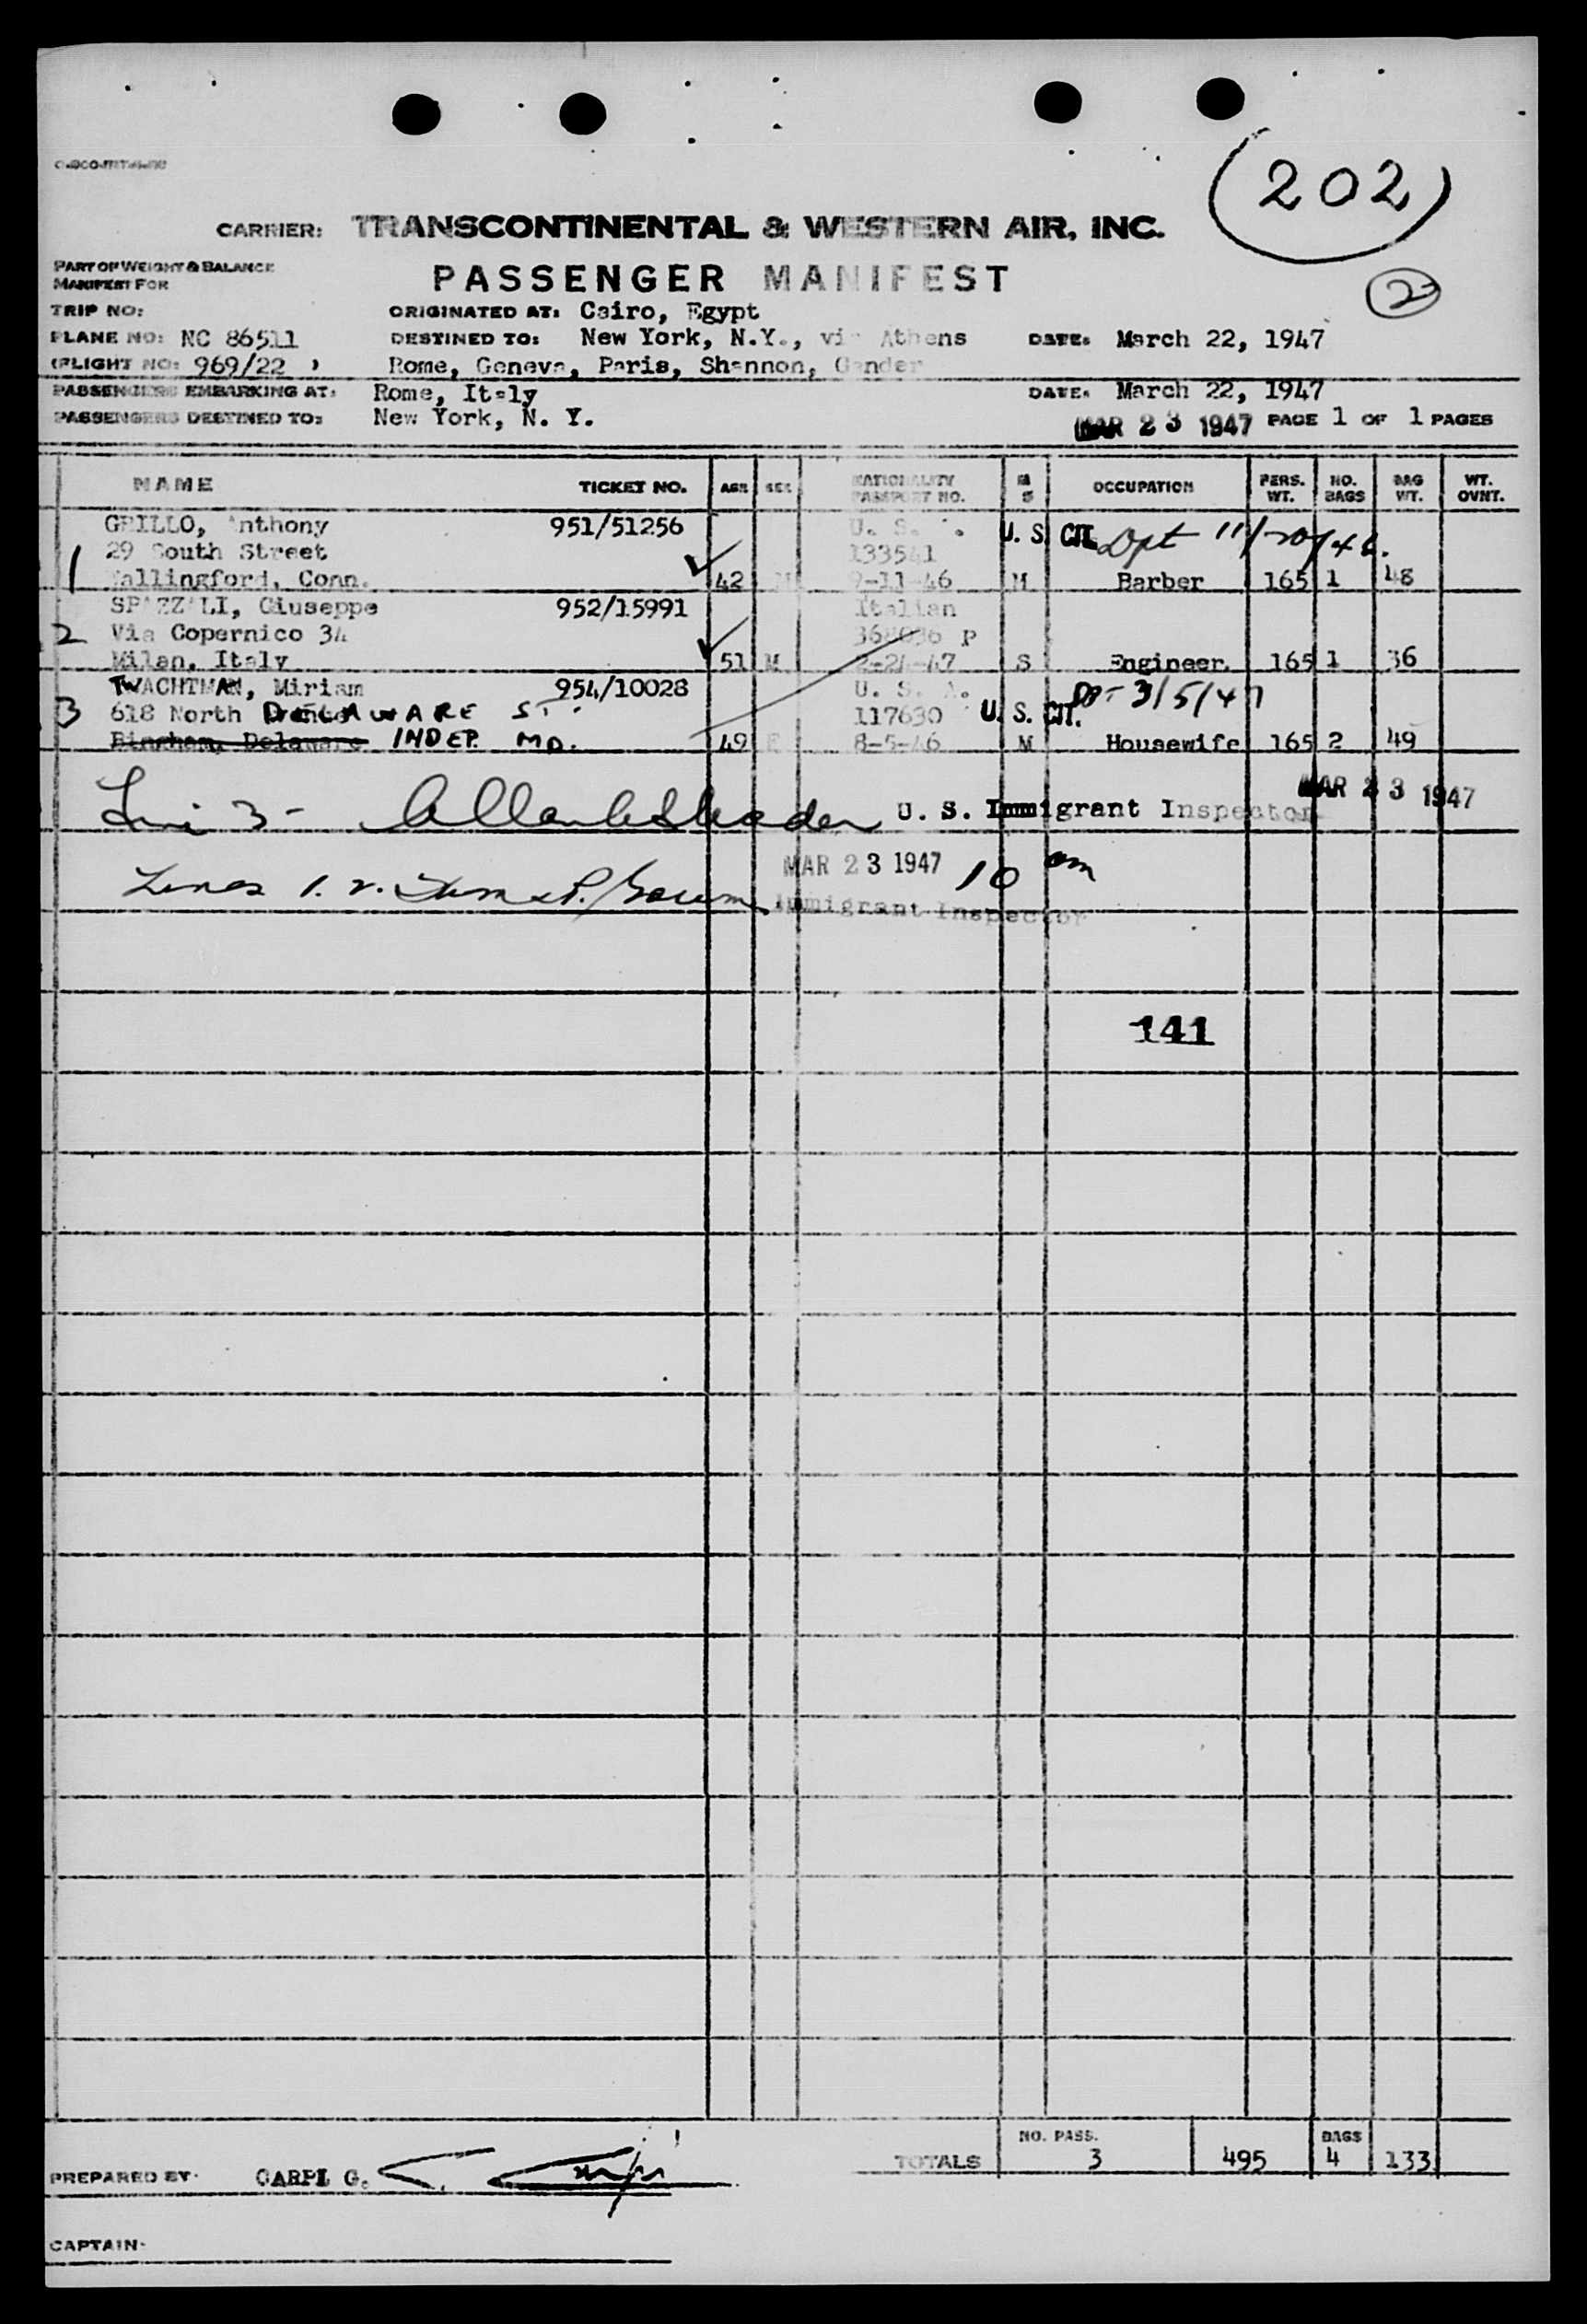 (202)
CARRIER: TRANSCONTINENTAL & WESTERN AIR, INC.
PART OF WEIGHT & BALANCE
MANIFEST FOR
PASSENGER MANIFEST
2
TRIP NO:
ORIGINATED AT: Cairo, Egypt
PLANE NO: NC 86511
DESTINED TO: New York, N.Y., via Athens
DATE: March 22, 1947
(FLIGHT NO: 969/22 )
Rome, Geneva, Paris, Shannon, Gander
PASSENGERS EMBARKING AT: Rome, Italy
DATE: March 22, 1947
PASSENGERS DESTINED TO: New York, N. Y.
MAR 23 1947 PAGE 1 OF 1 PAGES
NAME TICKET NO. AGE SEX NATIONALITY PASSPORT NO. M S OCCUPATION PERS. WT. NO. BAGS BAG WT. WT. OVNT.
GRILLO, Anthony 951/51256 U. S. A. U. S. CIT. Dpt 11/20/46.
29 South Street 133541
1 Wallingford, Conn. 42 M 9-11-46 M Barber 165 1 48
SPAZZALI, Giuseppe 952/15991 Italian
2 Via Copernico 34 368036 P
Milan, Italy 51 M 2-24-47 S Engineer 165 1 36
TWACHTMAN, Miriam 954/10028 U. S. A. 3/5/47
3 618 North DELAWARE ST. 117630 U. S. CIT.
Bingham, Delaware INDEP. MO. 49 F 8-5-46 M Housewife 165 2 49
MAR 23 1947
3 - U. S. Immigrant Inspector
MAR 23 1947 10 am
Lines 1. 2. Immigrant Inspector
141
NO. PASS. BAGS
TOTALS 3 495 4 133
PREPARED BY: CARPI G.
CAPTAIN: